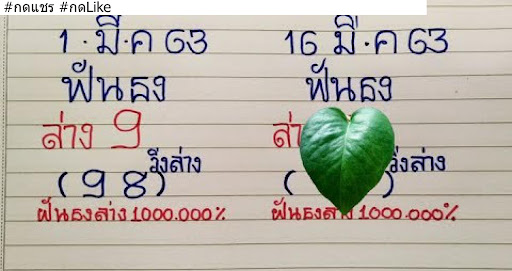 #กดแชร #กดLike
1 · มี · ค 63
ฟันธง
ล่าง 9
วิ่งล่าง
(9 8)
ฟันธงล่าง 1000.000%
16 มี · ค 63
ฟันธง
ล่า
วิ่งล่าง
( )
ฟันธงล่าง 1000.000%